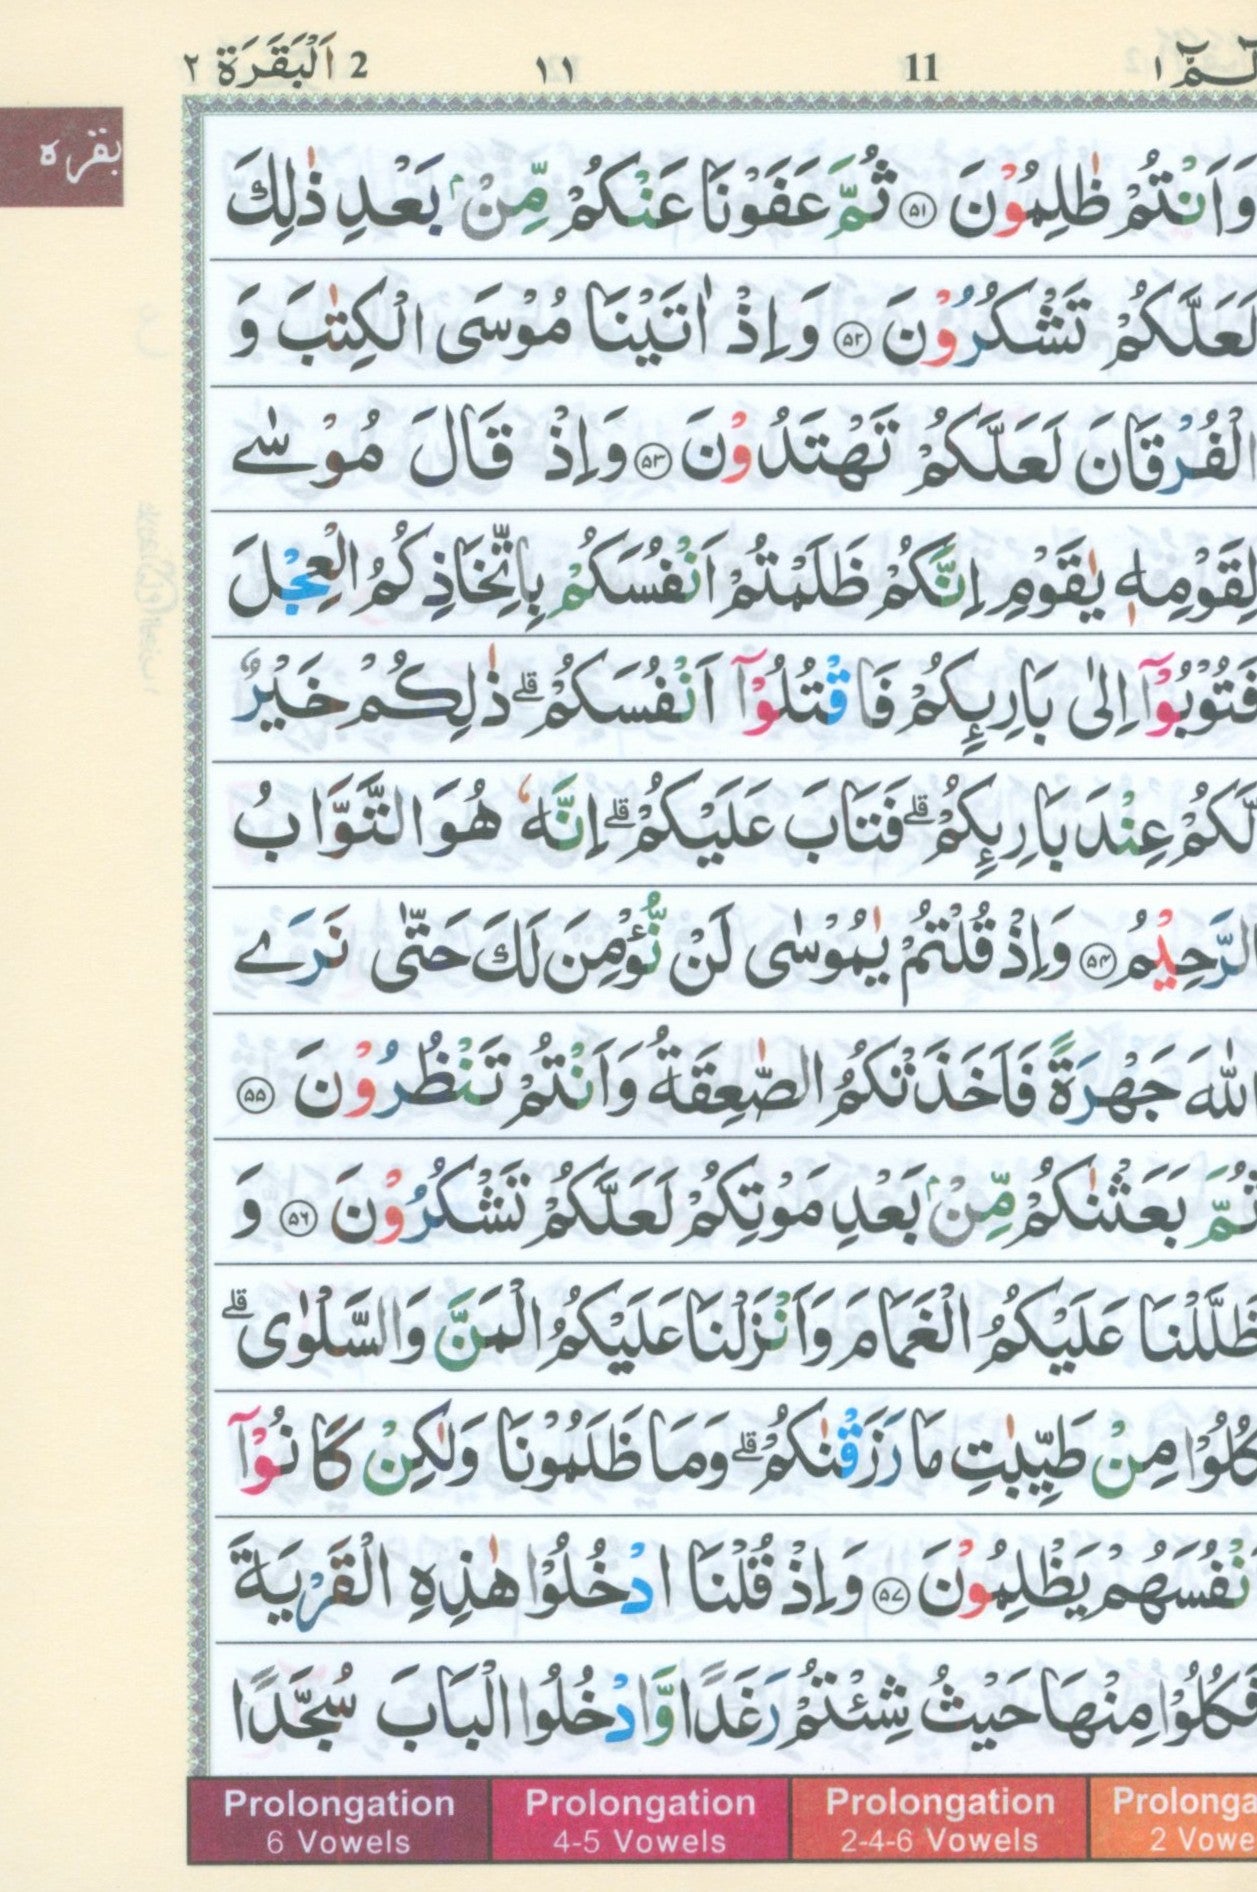 الٓـمّٓ ١ 11 ١١ 2 اَلْبَقَرَة ٢
بقره
وَاَنْتُمْ ظٰلِمُوْنَ ۝۵۱ ثُمَّ عَفَوْنَا عَنْكُمْ مِّنْۢ بَعْدِ ذٰلِكَ
لَعَلَّكُمْ تَشْكُرُوْنَ ۝۵۲ وَاِذْ اٰتَيْنَا مُوْسَى الْكِتٰبَ وَ
الْفُرْقَانَ لَعَلَّكُمْ تَهْتَدُوْنَ ۝۵۳ وَاِذْ قَالَ مُوْسٰے
لِقَوْمِهٖ يٰقَوْمِ اِنَّكُمْ ظَلَمْتُمْ اَنْفُسَكُمْ بِاتِّخَاذِكُمُ الْعِجْلَ
فَتُوْبُوْٓا اِلٰى بَارِىِٕكُمْ فَاقْتُلُوْٓا اَنْفُسَكُمْ ؕ ذٰلِكُمْ خَيْرٌ
لَّكُمْ عِنْدَ بَارِىِٕكُمْ ؕ فَتَابَ عَلَيْكُمْ ؕ اِنَّهٗ هُوَ التَّوَّابُ
الرَّحِيْمُ ۝۵۴ وَاِذْ قُلْتُمْ يٰمُوْسٰى لَنْ نُّؤْمِنَ لَكَ حَتّٰى نَرَے
اللّٰهَ جَهْرَةً فَاَخَذَتْكُمُ الصّٰعِقَةُ وَاَنْتُمْ تَنْظُرُوْنَ ۝۵۵
ثُمَّ بَعَثْنٰكُمْ مِّنْۢ بَعْدِ مَوْتِكُمْ لَعَلَّكُمْ تَشْكُرُوْنَ ۝۵۶ وَ
ظَلَّلْنَا عَلَيْكُمُ الْغَمَامَ وَاَنْزَلْنَا عَلَيْكُمُ الْمَنَّ وَالسَّلْوٰى ؕ
كُلُوْا مِنْ طَيِّبٰتِ مَا رَزَقْنٰكُمْ ؕ وَمَا ظَلَمُوْنَا وَلٰكِنْ كَانُوْٓا
نْفُسَهُمْ يَظْلِمُوْنَ ۝۵۷ وَاِذْ قُلْنَا ادْخُلُوْا هٰذِهِ الْقَرْيَةَ
فَكُلُوْا مِنْهَا حَيْثُ شِئْتُمْ رَغَدًا وَّادْخُلُوا الْبَابَ سُجَّدًا
Prolongation Prolongation Prolongation Prolonga
6 Vowels 4-5 Vowels 2-4-6 Vowels 2 Vowe